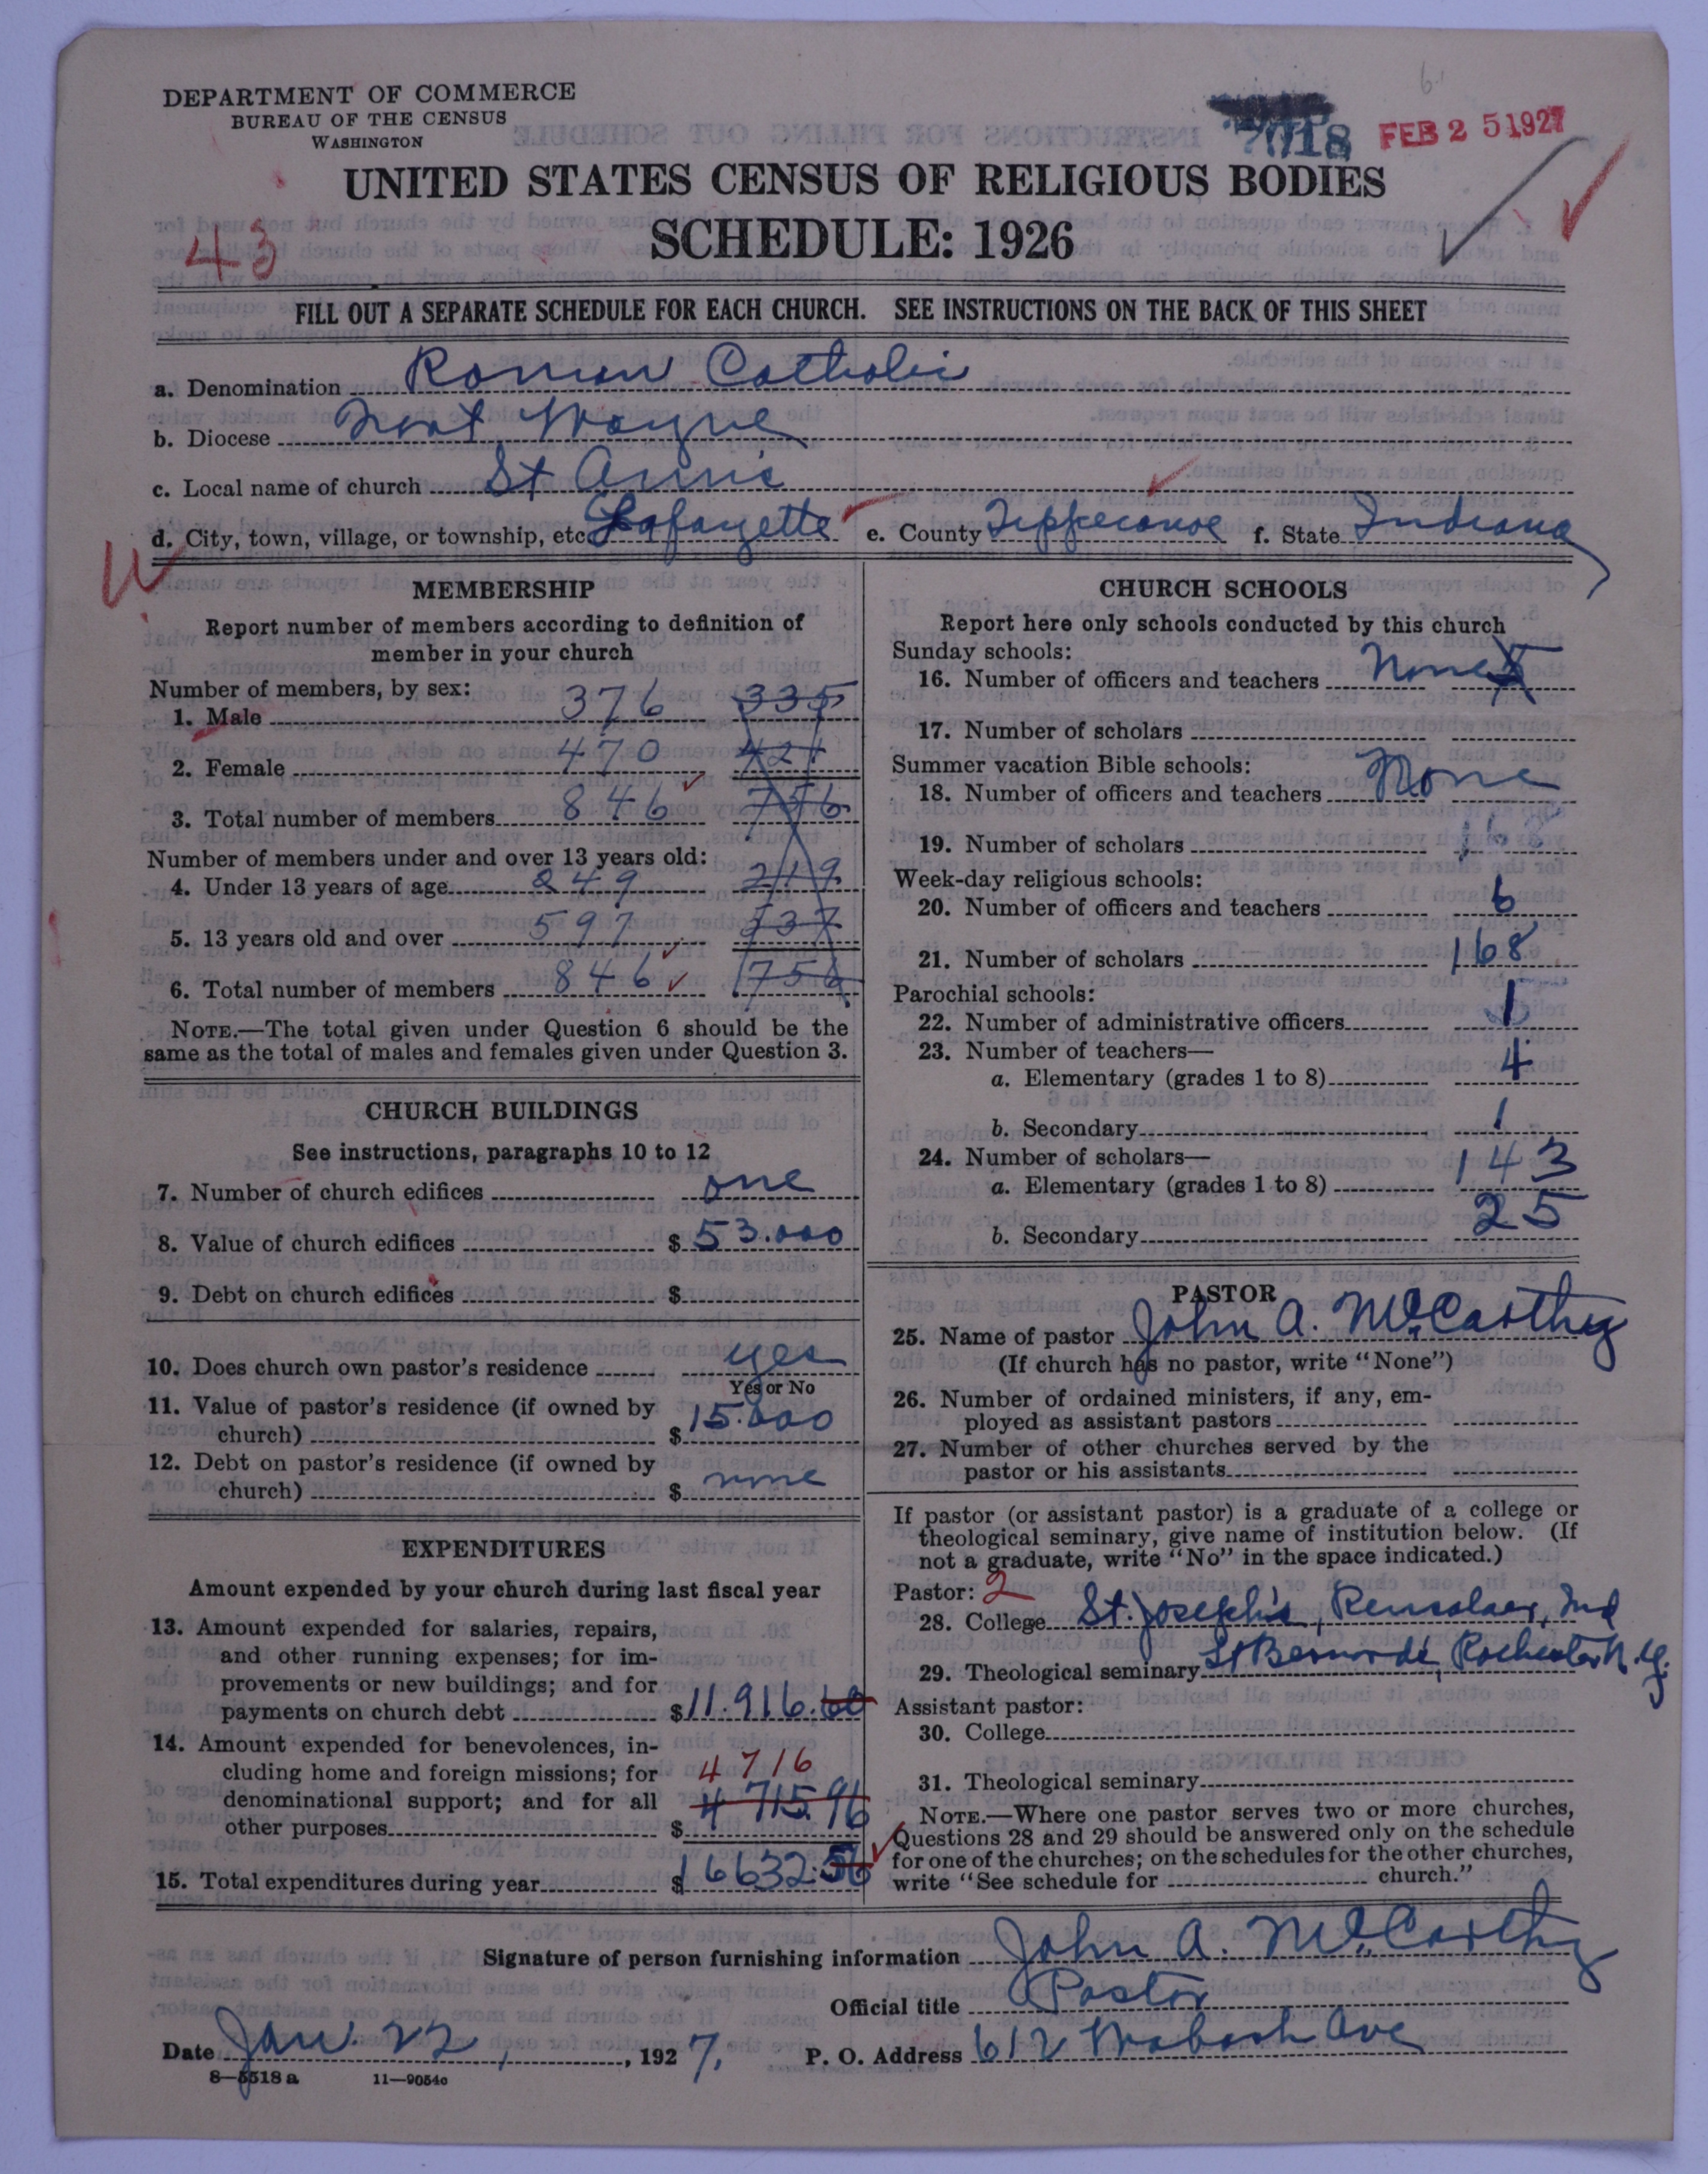 DEPARTMENT OF COMMERCE
BUREAU OF THE CENSUS
WASHINGTON
7018 FEB 25 1927
UNITED STATES CENSUS OF RELIGIOUS BODIES
SCHEDULE: 1926
43
FILL OUT A SEPARATE SCHEDULE FOR EACH CHURCH. SEE INSTRUCTIONS ON THE BACK OF THIS SHEET
a. Denomination Roman Catholic
b. Diocese Fort Wayne
c. Local name of church St Ann's
d. City, town, village, or township, etc. Lafayette e. County Tippecanoe f. State Indiana
MEMBERSHIP
Report number of members according to definition of
member in your church
Number of members, by sex:
1. Male 376 335
2. Female 470 421
3. Total number of members 846 756
Number of members under and over 13 years old:
4. Under 13 years of age 249 219
5. 13 years old and over 597 537
6. Total number of members 846 756
NOTE.—The total given under Question 6 should be the
same as the total of males and females given under Question 3.
CHURCH BUILDINGS
See instructions, paragraphs 10 to 12
7. Number of church edifices one
8. Value of church edifices $ 53.000
9. Debt on church edifices $
10. Does church own pastor's residence yes
Yes or No
11. Value of pastor's residence (if owned by
church) $ 15.000
12. Debt on pastor's residence (if owned by
church) $ none
EXPENDITURES
Amount expended by your church during last fiscal year
13. Amount expended for salaries, repairs,
and other running expenses; for im-
provements or new buildings; and for
payments on church debt $ 11.916.60
14. Amount expended for benevolences, in-
cluding home and foreign missions; for 4716
denominational support; and for all 4715.96
other purposes $
15. Total expenditures during year $ 16632.56
CHURCH SCHOOLS
Report here only schools conducted by this church
Sunday schools:
16. Number of officers and teachers None
17. Number of scholars
Summer vacation Bible schools:
18. Number of officers and teachers None
19. Number of scholars
Week-day religious schools:
20. Number of officers and teachers 6
21. Number of scholars 168
Parochial schools:
22. Number of administrative officers 1
23. Number of teachers—
a. Elementary (grades 1 to 8) 4
b. Secondary 1
24. Number of scholars—
a. Elementary (grades 1 to 8) 143
b. Secondary 25
PASTOR
25. Name of pastor John A. McCarthy
(If church has no pastor, write "None")
26. Number of ordained ministers, if any, em-
ployed as assistant pastors
27. Number of other churches served by the
pastor or his assistants
If pastor (or assistant pastor) is a graduate of a college or
theological seminary, give name of institution below. (If
not a graduate, write "No" in the space indicated.)
Pastor: 2
28. College St. Joseph's, Rensalaer, Ind
29. Theological seminary St Bernard's, Rochester N.Y.
Assistant pastor:
30. College
31. Theological seminary
NOTE.—Where one pastor serves two or more churches,
Questions 28 and 29 should be answered only on the schedule
for one of the churches; on the schedules for the other churches,
write "See schedule for church."
Signature of person furnishing information John A. McCarthy
Official title Pastor
Date Jan. 22, 1927. P. O. Address 612 Wabash Ave
8—5518 a 11—9054c